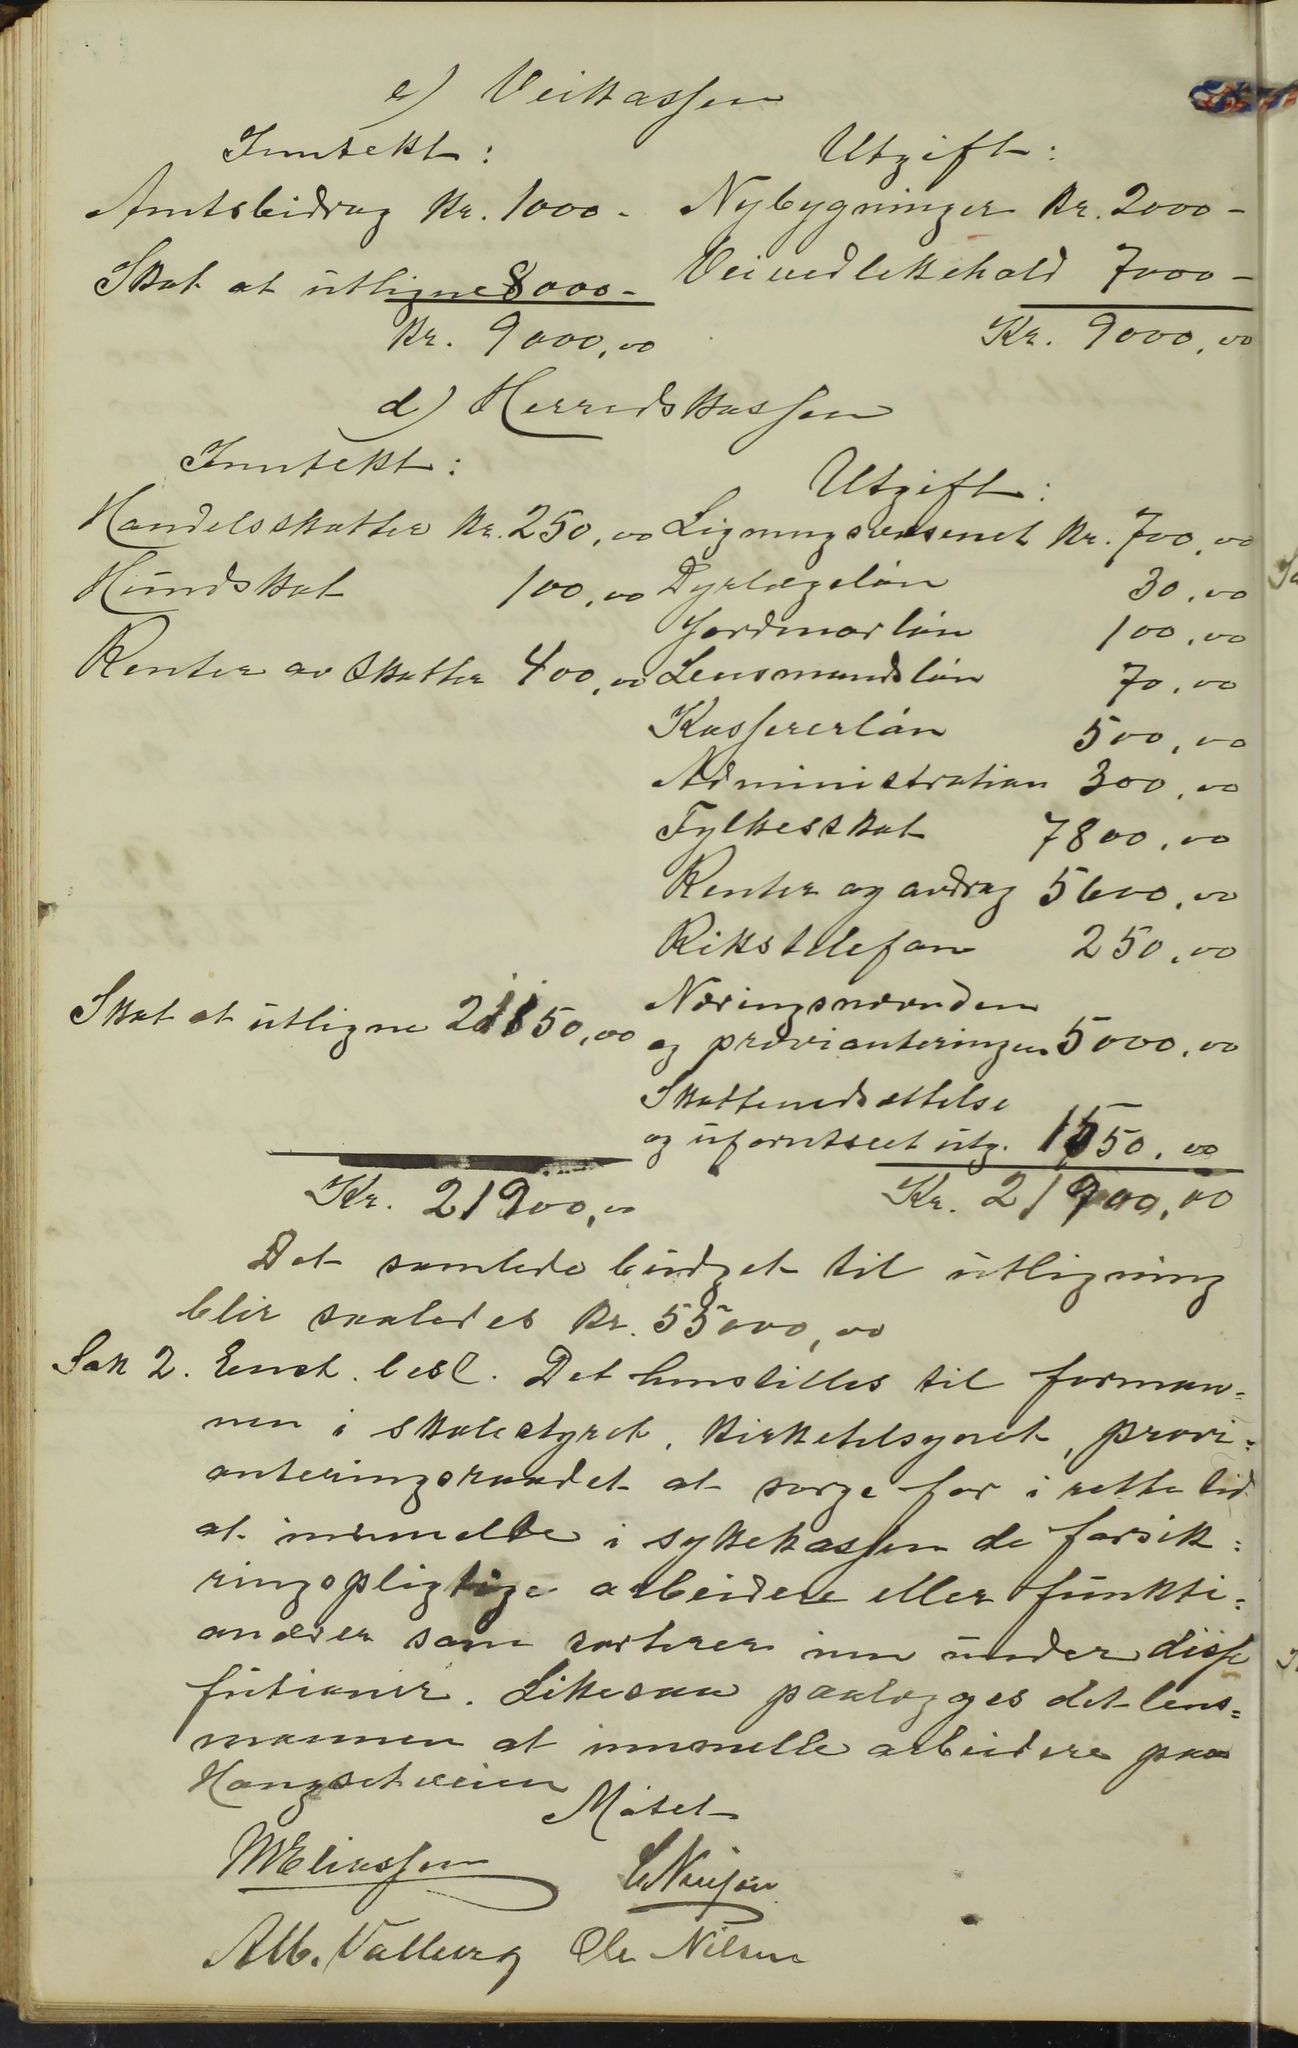 c) Veikassen
Inntekt: Utgift:
Amtsbidrag Kr. 1000 - Nybygninger Kr. 2000 -
Skat at utligne 8000 - Veivedlikehald 7000 -
Kr. 9000,00 Kr. 9000,00
d) Herredskassen
Inntekt: Utgift:
Handelsskatter Kr. 250,00 Ligningsvesenet Kr. 700,00
Hundskat 100,00 Dyrlægeløn 30,00
Jordmorløn 100,00
Renter av skatter 400,00 Lensmandsløn 70,00
Kassererløn 500,00
Administration 300,00
Fylkesskat 7800,00
Renter og avdrag 5600,00
Rikstelefon 250,00
Næringsnævnden
Skat at utligne 21150,00 og provianteringen 5000,00
Skattenedsættelse
og uforutseet utg. 1550,00
Kr. 21900,00 Kr. 21900,00
Det samlede budget til utligning
blir saaledes Kr. 55000,00
Sak 2. Enst. besl. Det henstilles til forman-
nen i skolestyret, kirketilsynet, provi-
anteringsraadet at sørge for i rette tid
at innmelde i sykekassen de forsik-
ringspligtige arbeidere eller funkti-
onærer som sorterer inn under disse
Likesaa paalægges det lens-
mannen at innmelle arbeidere paa
Møtet
MEliassen
Alb. Valberg Ole Nilsen